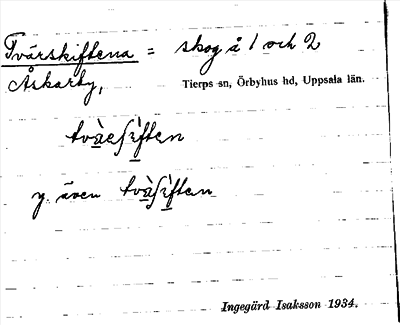 Tvärskiftena = skog å 1 och 2
Åskarby,
Tierps sn, Örbyhus hd, Uppsala län.
tvὰeʃìften
y. även tvὰʃìften
Ingegärd Isaksson 1934.